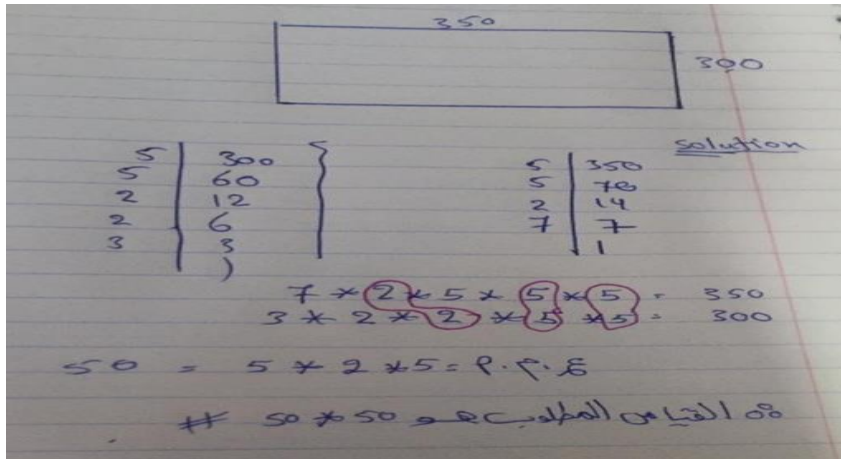 350
300
solution
5 | 300
5 | 60
2 | 12
2 | 6
3 | 3
1
5 | 350
5 | 70
2 | 14
7 | 7
1
7 * 2 * 5 * 5 * 5 = 350
3 * 2 * 2 * 5 * 5 = 300
ع.م.م = 5 * 2 * 5 = 50
∴ القياس المطلوب هو 50 * 50 #